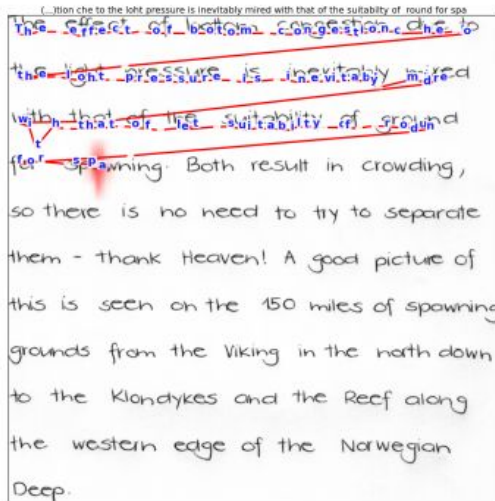 (...)tion che to the loht pressure is inevitably mired with that of the suitabilty of round for spa
The effect of bottom congestion due to
the light pressure is inevitably mixed
with that of the suitability of ground
for spawning. Both result in crowding,
so there is no need to try to separate
them - thank Heaven! A good picture of
this is seen on the 150 miles of spawning
grounds from the Viking in the north down
to the Klondykes and the Reef along
the western edge of the Norwegian
Deep.